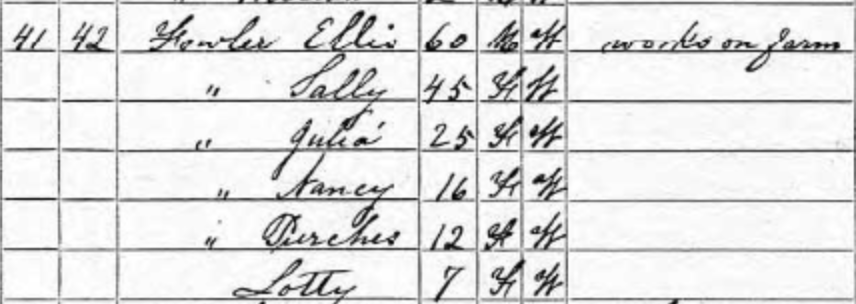 41 42 Fowler Ellis 60 M W works on farm
" Sally 45 F W
" Julia 25 F W
" Nancy 16 F W
" 12 F W
Lotty 7 F W